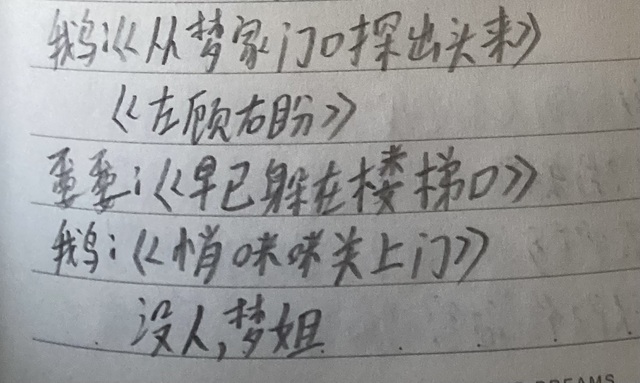 鹅:《从梦家门口探出头来》
《左顾右盼》
蛋蛋:《早已躲在楼梯口》
鹅:《悄咪咪关上门》
没人,梦姐
DREAMS